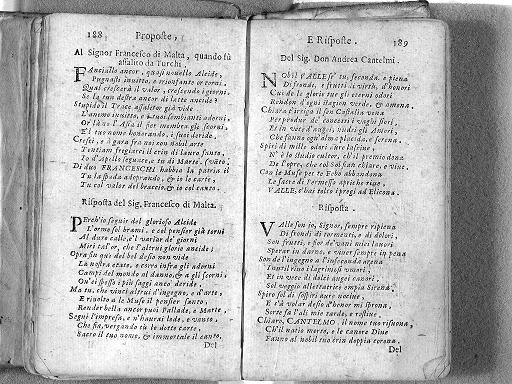 188 Proposte,
Al Signor Francesco di Malta, quando fù
assalito da Turchi.
FAnciullo ancor, quasi nouello Alcide,
Pugnasti inuitto, e trionfante torni
Qual crescerà il valor, crescendo i giorni
Se la tua destra ancor di latte ancide?
Stupido il Trace assalitor già vide
L'animo inuitto, e i tuoi sembianti adorni
Or là ne l'Asia il fier membra gli scorni,
E'l tuo nome honorando, i suoi deride.
Cresci, e à gara fra noi con nobil arte
Tentiam fregiarci il crin di lauro santo,
Io d'Apollo seguace, e tu di Marte.
Di duo FRANCESCHI habbia la patria il
Tu la spada adoprando, & io le carte,
Tu col valor del braccio, & io col canto.
Risposta del Sig. Francesco di Malta.
PErch'io seguir del glorioso Alcide
L'orme sol brami, e col pensier già torni
Al duro calle, e'l varlar de' giorni
Miri tal'or, che l'altrui glorie ancide;
Opra fin qui del bel desio non vide
La nostra etate, e corra infra gli adorni
Campi del mondo al danno, & a gli scorni,
On'ei spesso i più saggi anco deride.
Ma tu, che vinci altrui d'ingegno, e d'arte,
E riuolto a le Muse il pensier santo,
Render bella ancor puoi Pallade, e Marte,
Segui l'impresa, e n'haurai lode, e vanto,
Che sia, vergando tù le dotte carte,
Sacro il tuo nome, & immortale il canto.
Del
E Risposte. 189
Del Sig. Don Andrea Cantelmi.
NObil VALLE se' tu, feconda, e piena
Di fronde, e frutti di virtù, d'honori
Cui de le glorie tue gli eterni odori
Rendon d'ogni stagion verde, & amena.
Chiara t'irriga il sen Castalia vena
Per produr de' concetti i vaghi fiori,
Et in vece d'augei, nudri gli Amori,
Che fanno ogn'alma placida, e serena.
Spiri di mille odori aure lasciue,
N'è lo studio cultor, ch'il premio dona
De l'opre, che col Sol fian chiare, e viue.
Con le Muse per te Febo abbandona
Le sacre di Permesso apriche riue,
VALLE, e'hai tolto i pregi ad Elicona.
Risposta.
VAlle son io, Signor, sempre ripiena
Di frondi di tormenti, e di dolori,
Son frutti, e fior de' vani miei lauori
Sperar in darno, e viuer sempre in pena
Son de l'ingegno a l'infeconda arena
Inutil riuo i lagrimosi vmori,
Et in vece di dolci augei canori,
Sol veggio allettatrice empia Sirena.
Spiro sol di sospiri aure nociue,
E s'à volar desio d'honor mi sprona,
Sorte fa l'ali mie tarde, e restiue
Chiaro, CANTELMO, il nome tuo risuona,
Ch'il natio merto, e le canore Diue
Fanno al nobil tuo crin doppia corona.
Del